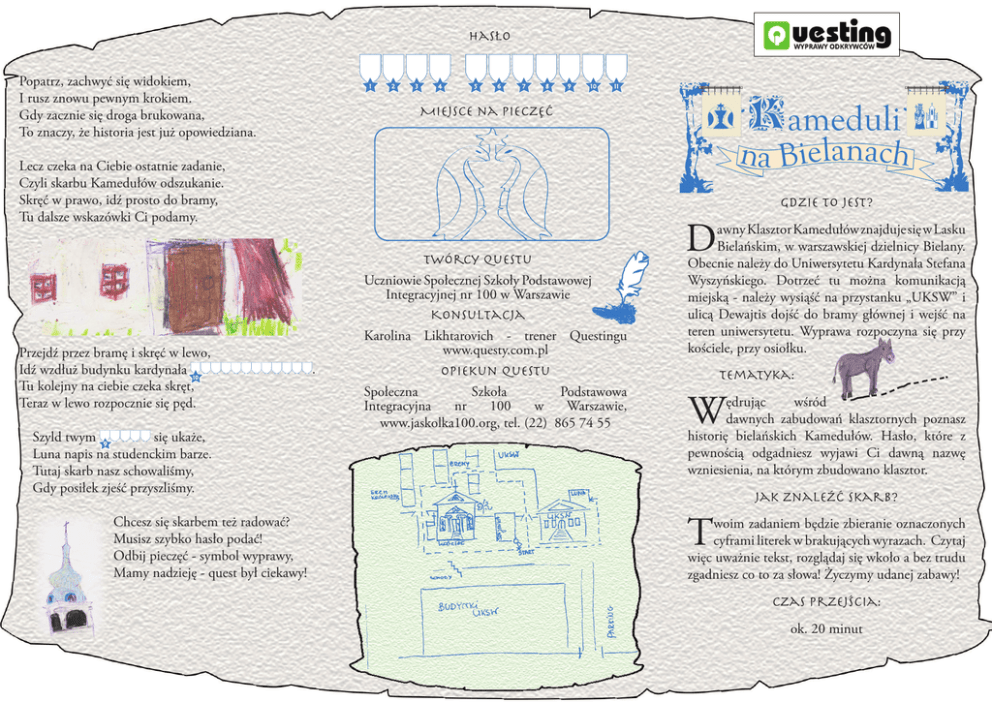 Popatrz, zachwyć się widokiem,
I rusz znowu pewnym krokiem.
Gdy zacznie się droga brukowana,
To znaczy, że historia jest już opowiedziana.
Lecz czeka na Ciebie ostatnie zadanie,
Czyli skarbu Kamedułów odszukanie.
Skręć w prawo, idź prosto do bramy,
Tu dalsze wskazówki Ci podamy.
Przejdź przez bramę i skręć w lewo,
Idź wzdłuż budynku kardynała .
Tu kolejny na ciebie czeka skręt,
Teraz w lewo rozpocznie się pęd.
Szyld twym się ukaże,
Luna napis na studenckim barze.
Tutaj skarb nasz schowaliśmy,
Gdy posiłek zjeść przyszliśmy.
Chcesz się skarbem też radować?
Musisz szybko hasło podać!
Odbij pieczęć - symbol wyprawy,
Mamy nadzieję - quest był ciekawy!
HASŁO
1 2 3 4 5 6 7 8 9 10 11
MIEJSCE NA PIECZĘĆ
TWÓRCY QUESTU
Uczniowie Społecznej Szkoły Podstawowej
Integracyjnej nr 100 w Warszawie
KONSULTACJA
Karolina Likhtarovich - trener Questingu
www.questy.com.pl
OPIEKUN QUESTU
Społeczna Szkoła Podstawowa
Integracyjna nr 100 w Warszawie,
www.jaskolka100.org, tel. (22) 865 74 55
UKSW
UKSW
START
BUDYNKI
UKSW
PARKING
Questing
WYPRAWY ODKRYWCÓW
Kameduli
na Bielanach
GDZIE TO JEST?
Dawny Klasztor Kamedułów znajduje się w Lasku
Bielańskim, w warszawskiej dzielnicy Bielany.
Obecnie należy do Uniwersytetu Kardynała Stefana
Wyszyńskiego. Dotrzeć tu można komunikacją
miejską - należy wysiąść na przystanku „UKSW” i
ulicą Dewajtis dojść do bramy głównej i wejść na
teren uniwersytetu. Wyprawa rozpoczyna się przy
kościele, przy osiołku.
TEMATYKA:
Wędrując wśród
dawnych zabudowań klasztornych poznasz
historię bielańskich Kamedułów. Hasło, które z
pewnością odgadniesz wyjawi Ci dawną nazwę
wzniesienia, na którym zbudowano klasztor.
JAK ZNALEŹĆ SKARB?
Twoim zadaniem będzie zbieranie oznaczonych
cyframi literek w brakujących wyrazach. Czytaj
więc uważnie tekst, rozglądaj się wkoło a bez trudu
zgadniesz co to za słowa! Życzymy udanej zabawy!
CZAS PRZEJŚCIA:
ok. 20 minut